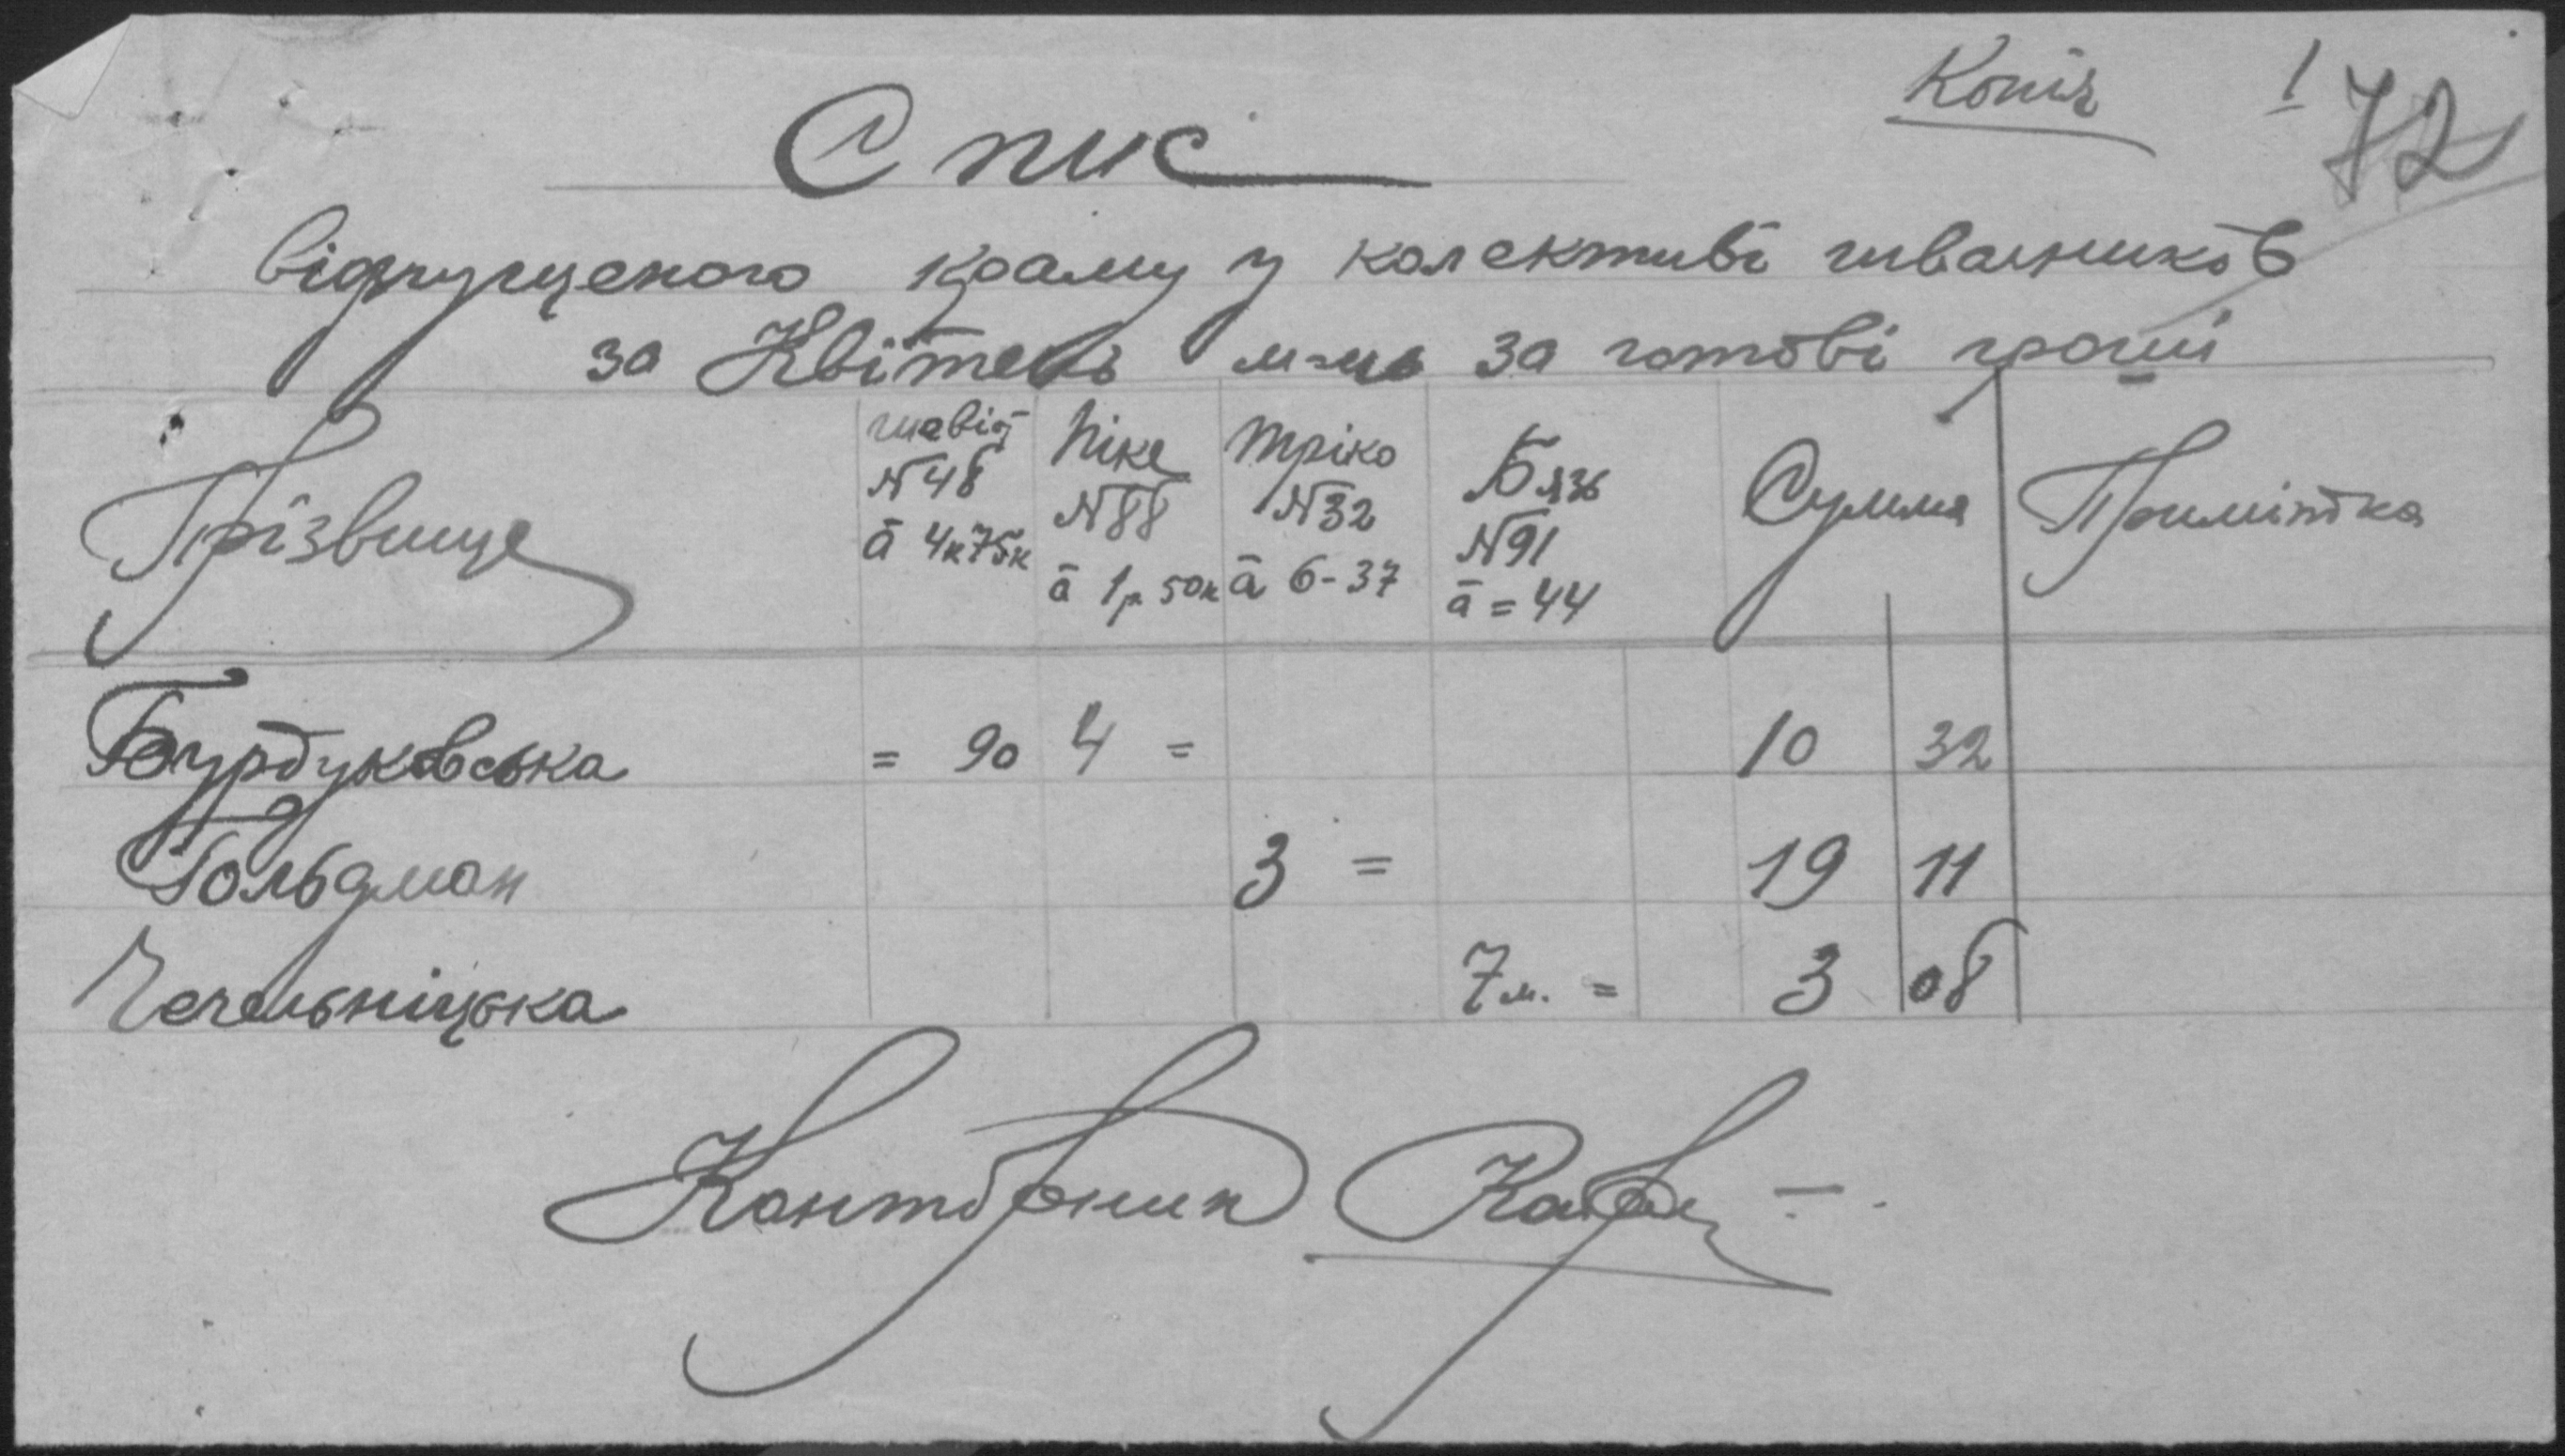 Копія 1 72
Спис
відпущеного краму у колективі швачников
за Квітень м-ць за готові гроші
Прізвище шевіот N48 ā 4к75к Піке N88 ā 1р 50к Тріко N32 ā 6-37 Бязь N91 ā = 44 Сумма Примітка
Бурдуковська = 90 4 = 10 32
Гольдман 3 = 19 11
Чечельніцька 7м. = 3 08
Конторник